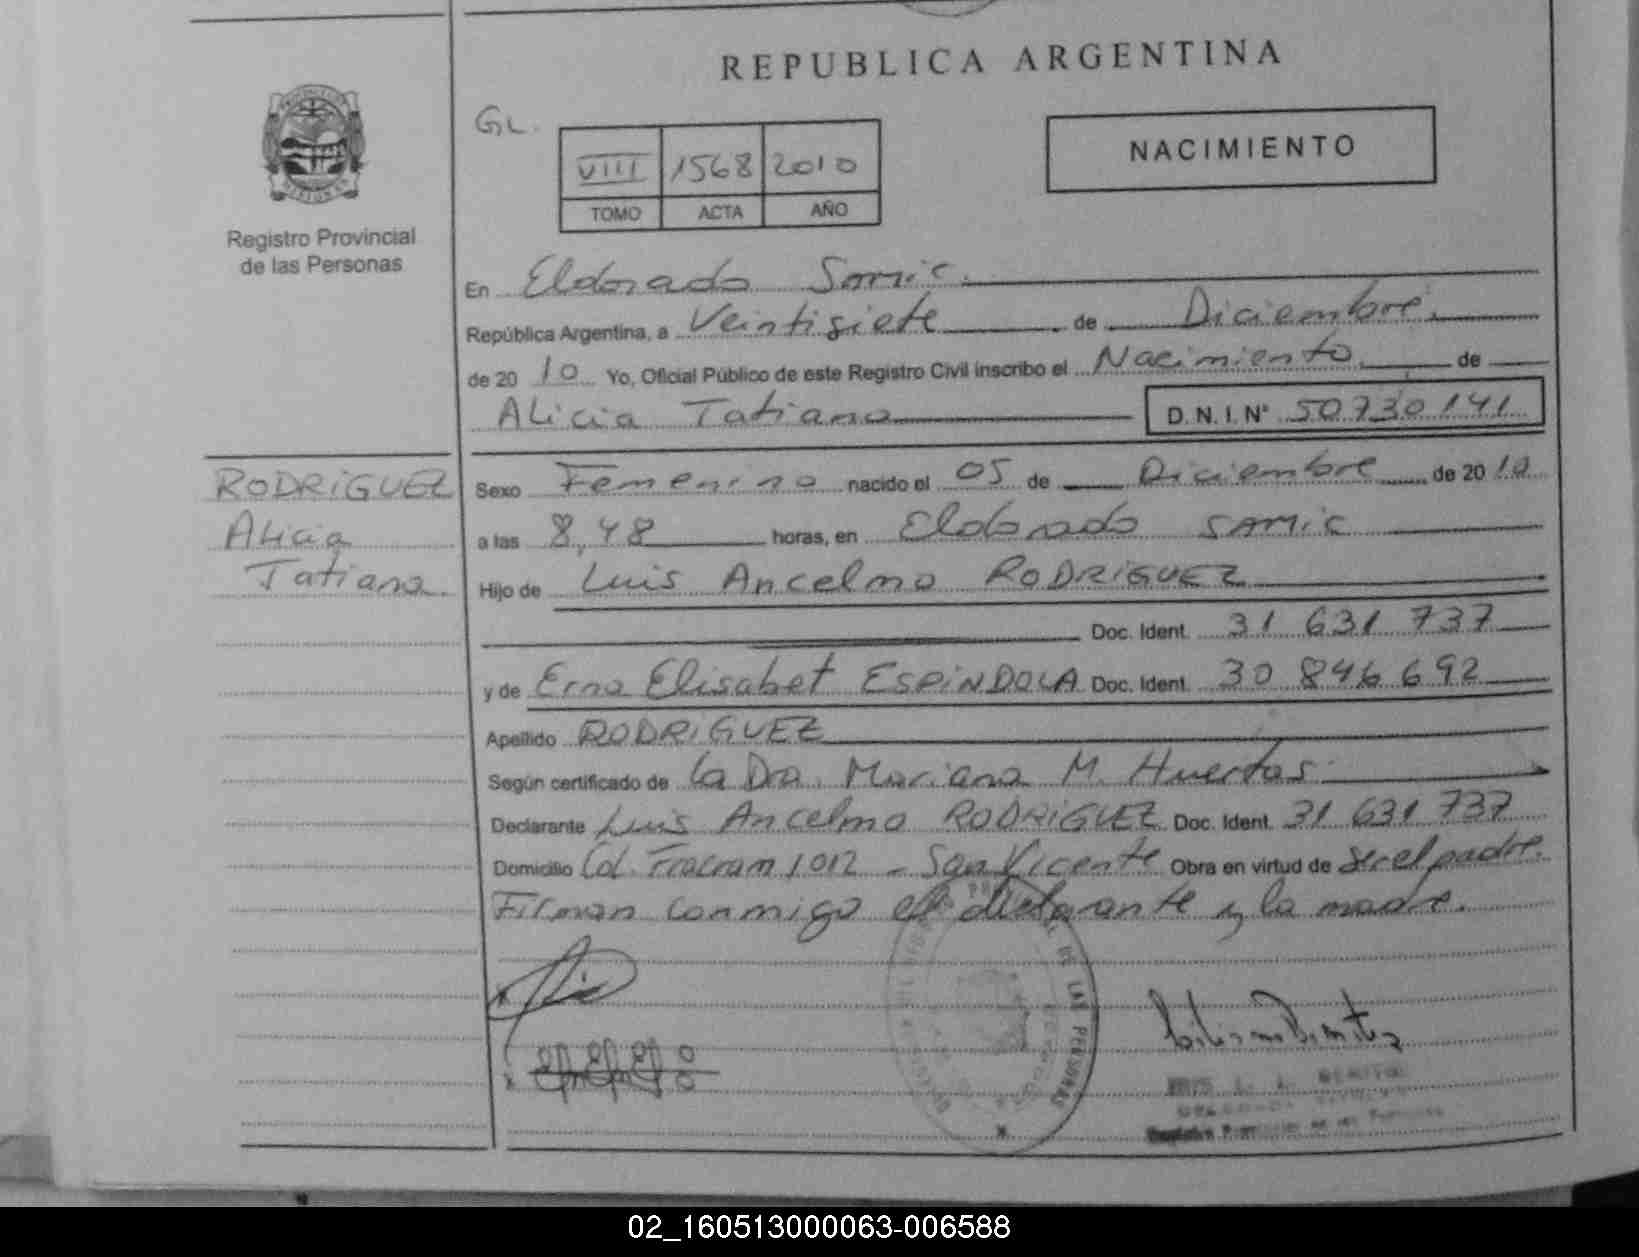 REPUBLICA ARGENTINA
GL.
NACIMIENTO
VIII 1568 2010
TOMO ACTA AÑO
Registro Provincial
de las Personas
En Eldorado Samic.
República Argentina, a Veintisiete de Diciembre.
de 20 10 Yo, Oficial Público de este Registro Civil inscribo el Nacimiento de
Alicia Tatiana D.N.I.Nº 50730141
RODRIGUEZ
Alicia
Tatiana.
Sexo Femenino nacido el 05 de Diciembre de 20 10
a las 8,48 horas, en Eldorado SAMIC
Hijo de Luis Ancelmo RODRIGUEZ
Doc. Ident. 31 631 737
y de Erna Elisabet ESPINDOLA Doc. Ident. 30 846 692
Apellido RODRIGUEZ
Según certificado de La Dra. Mariana M. Huertas.
Declarante Luis Ancelmo RODRIGUEZ Doc. Ident. 31 631 737
Domicilio Col. Fracram 1012 - San Vicente Obra en virtud de ser el padre.
Firman conmigo el declarante y la madre.
DE LAS PERSONAS
02_160513000063-006588